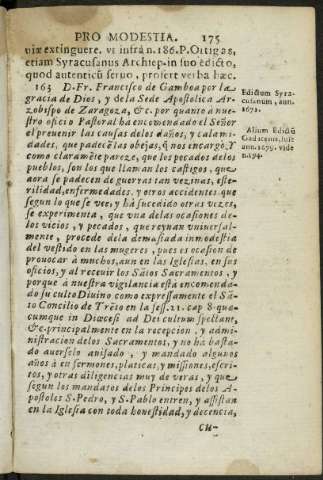 PRO MODESTIA. 175
viæ extinguere. vt infrà n. 186. P. Ortigas,
etiam Syracusanus Archiep. in suo edicto,
quod autenticũ seruo, profert verba hæc.
163 D. Fr. Francisco de Gamboa por la
gracia de Dios, y de la Sede Apostolica Ar-
zobispo de Zaragoza, &c. por quanto à nue-
stro oficio Pastoral ha encomendado el Señor
el preuenir las causas delos daños, y calami-
dades, que padecẽ las obejas, q̃ nos encargò. Y
como claramẽte pareze, que los pecados de los
pueblos, son los que llaman los castigos, que
aora se padecen de guerras tan vezinas, este-
rilidad, enfermedades, y otros accidentes que
segun lo que se vee, y hà succedido otras vezes,
se experimenta, que vna delas ocasiones de-
los vicios, y pecados, que reynan vniuersal-
mente, procede dela demasiada inmodestia
del vestido en las mugeres, pues es ocasion de
prouocar à muchos, aun en las Iglesias, en sus
oficios, y al receuir los Sãtos Sacramentos, y
porque à nuestra vigilancia està encomenda-
do su culto Diuino como expressamente el Sã-
to Concilio de Trẽto en la sess. 21. cap 8. qua-
cumque in Diœcesi ad Dei cultum spectant,
&c. principalmente en la recepcion, y admi-
nistracion delos Sacramentos, y no hà basta-
do auerselo auisado, y mandado algunos
años à en sermones, platicas, y missiones, escri-
tos, y otras diligencias muy de veras, y que
segun los mandatos delos Principes delos A-
postoles S. Pedro, y S. Pablo entren, y assistan
en la Iglesia con toda honestidad, y decencia,
cu-
Edictum Syra-
cusanum, ann.
1672.
Alium Edictũ
Gaditanus, sus
ann. 1675. vide
n. 194.